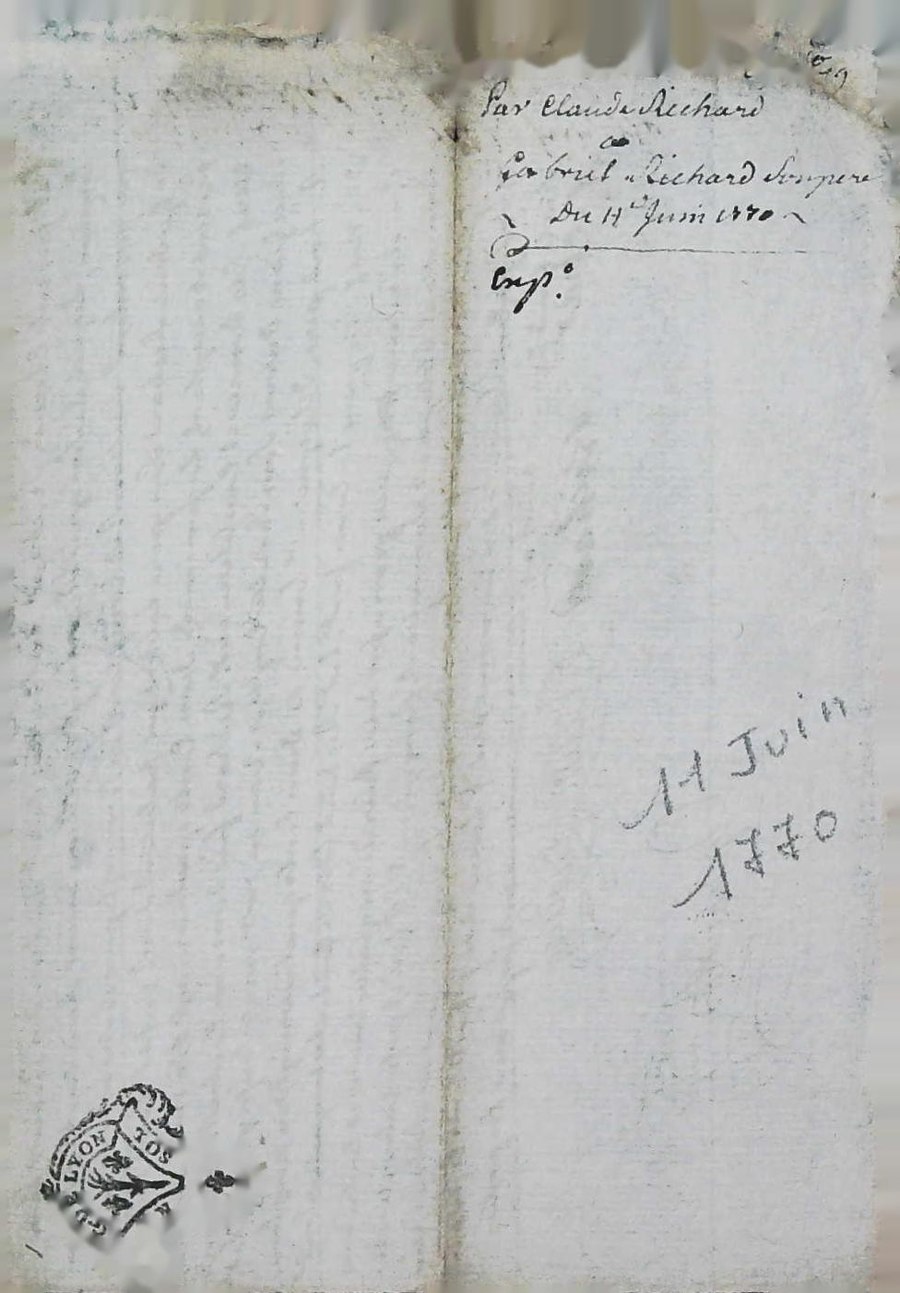 Par Claude Richard
a
Gabriel Richard Son pere
Du 11e Juin 1770
Exp.o
11 Juin
1770
G. DE LYON